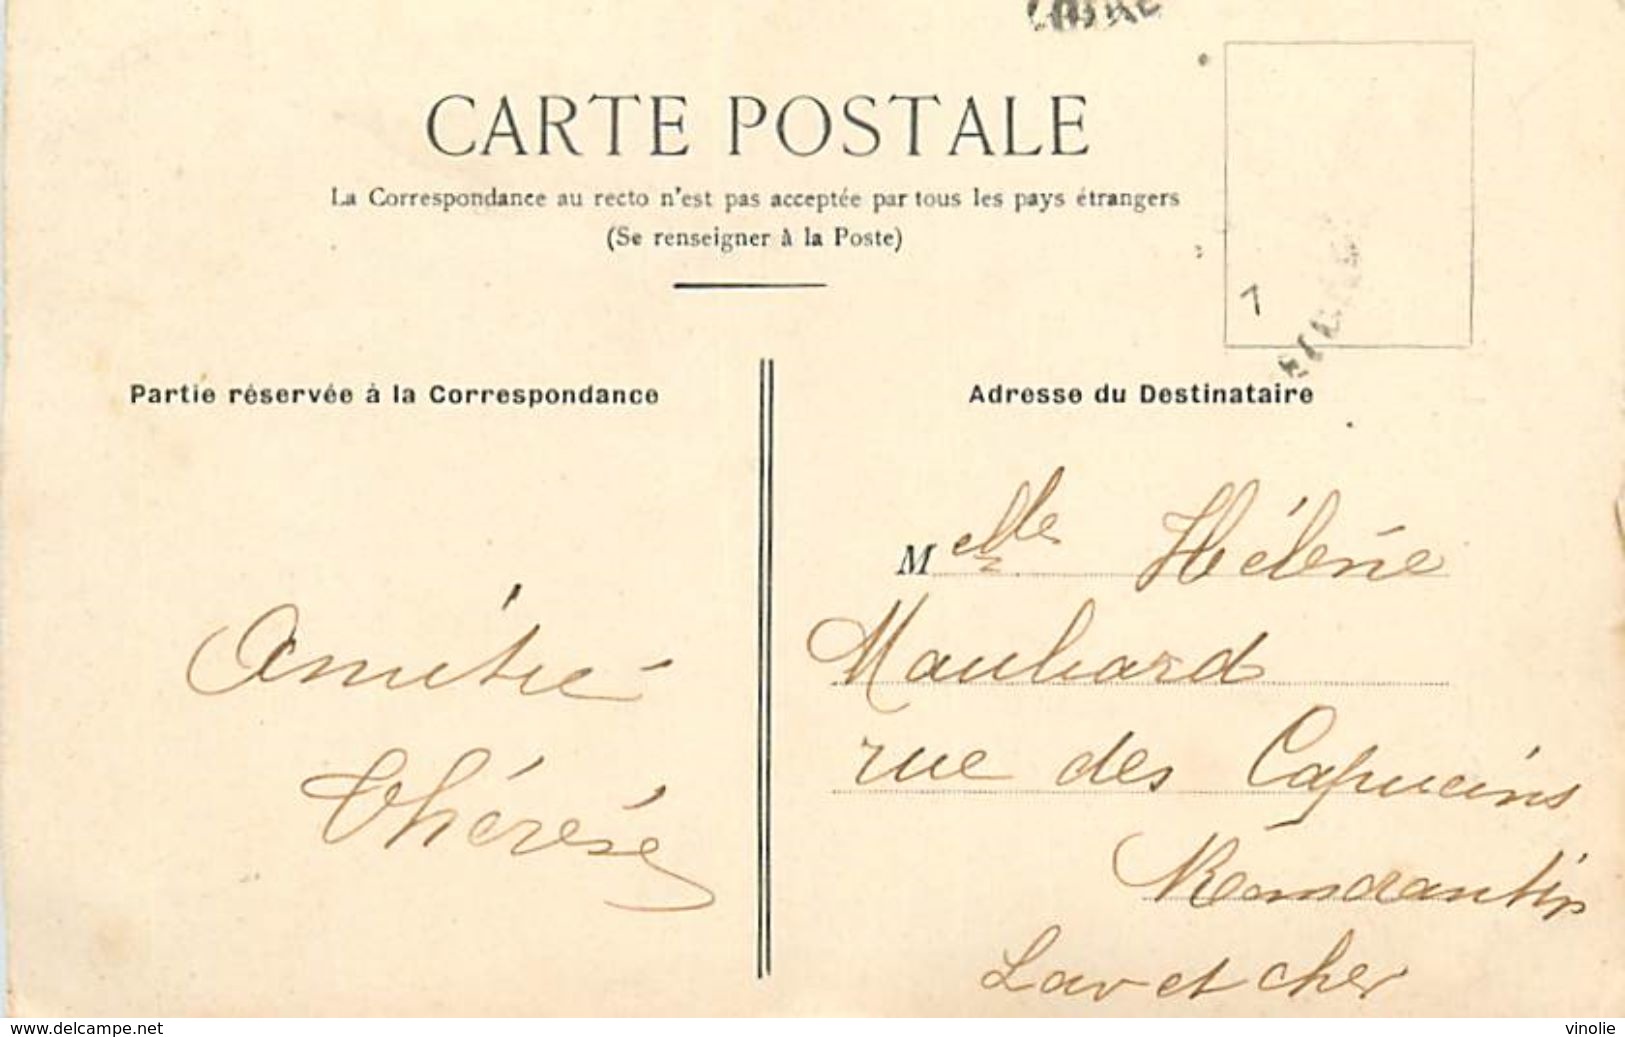 CARTE POSTALE
La Correspondance au recto n'est pas acceptée par tous les pays étrangers
(Se renseigner à la Poste)
1
Partie réservée à la Correspondance
Amitié
Thérèse
Adresse du Destinataire
Melle Hélène
Mauliard
rue des Capucins
Romorantin
Loir et Cher
www.delcampe.net
vinolie